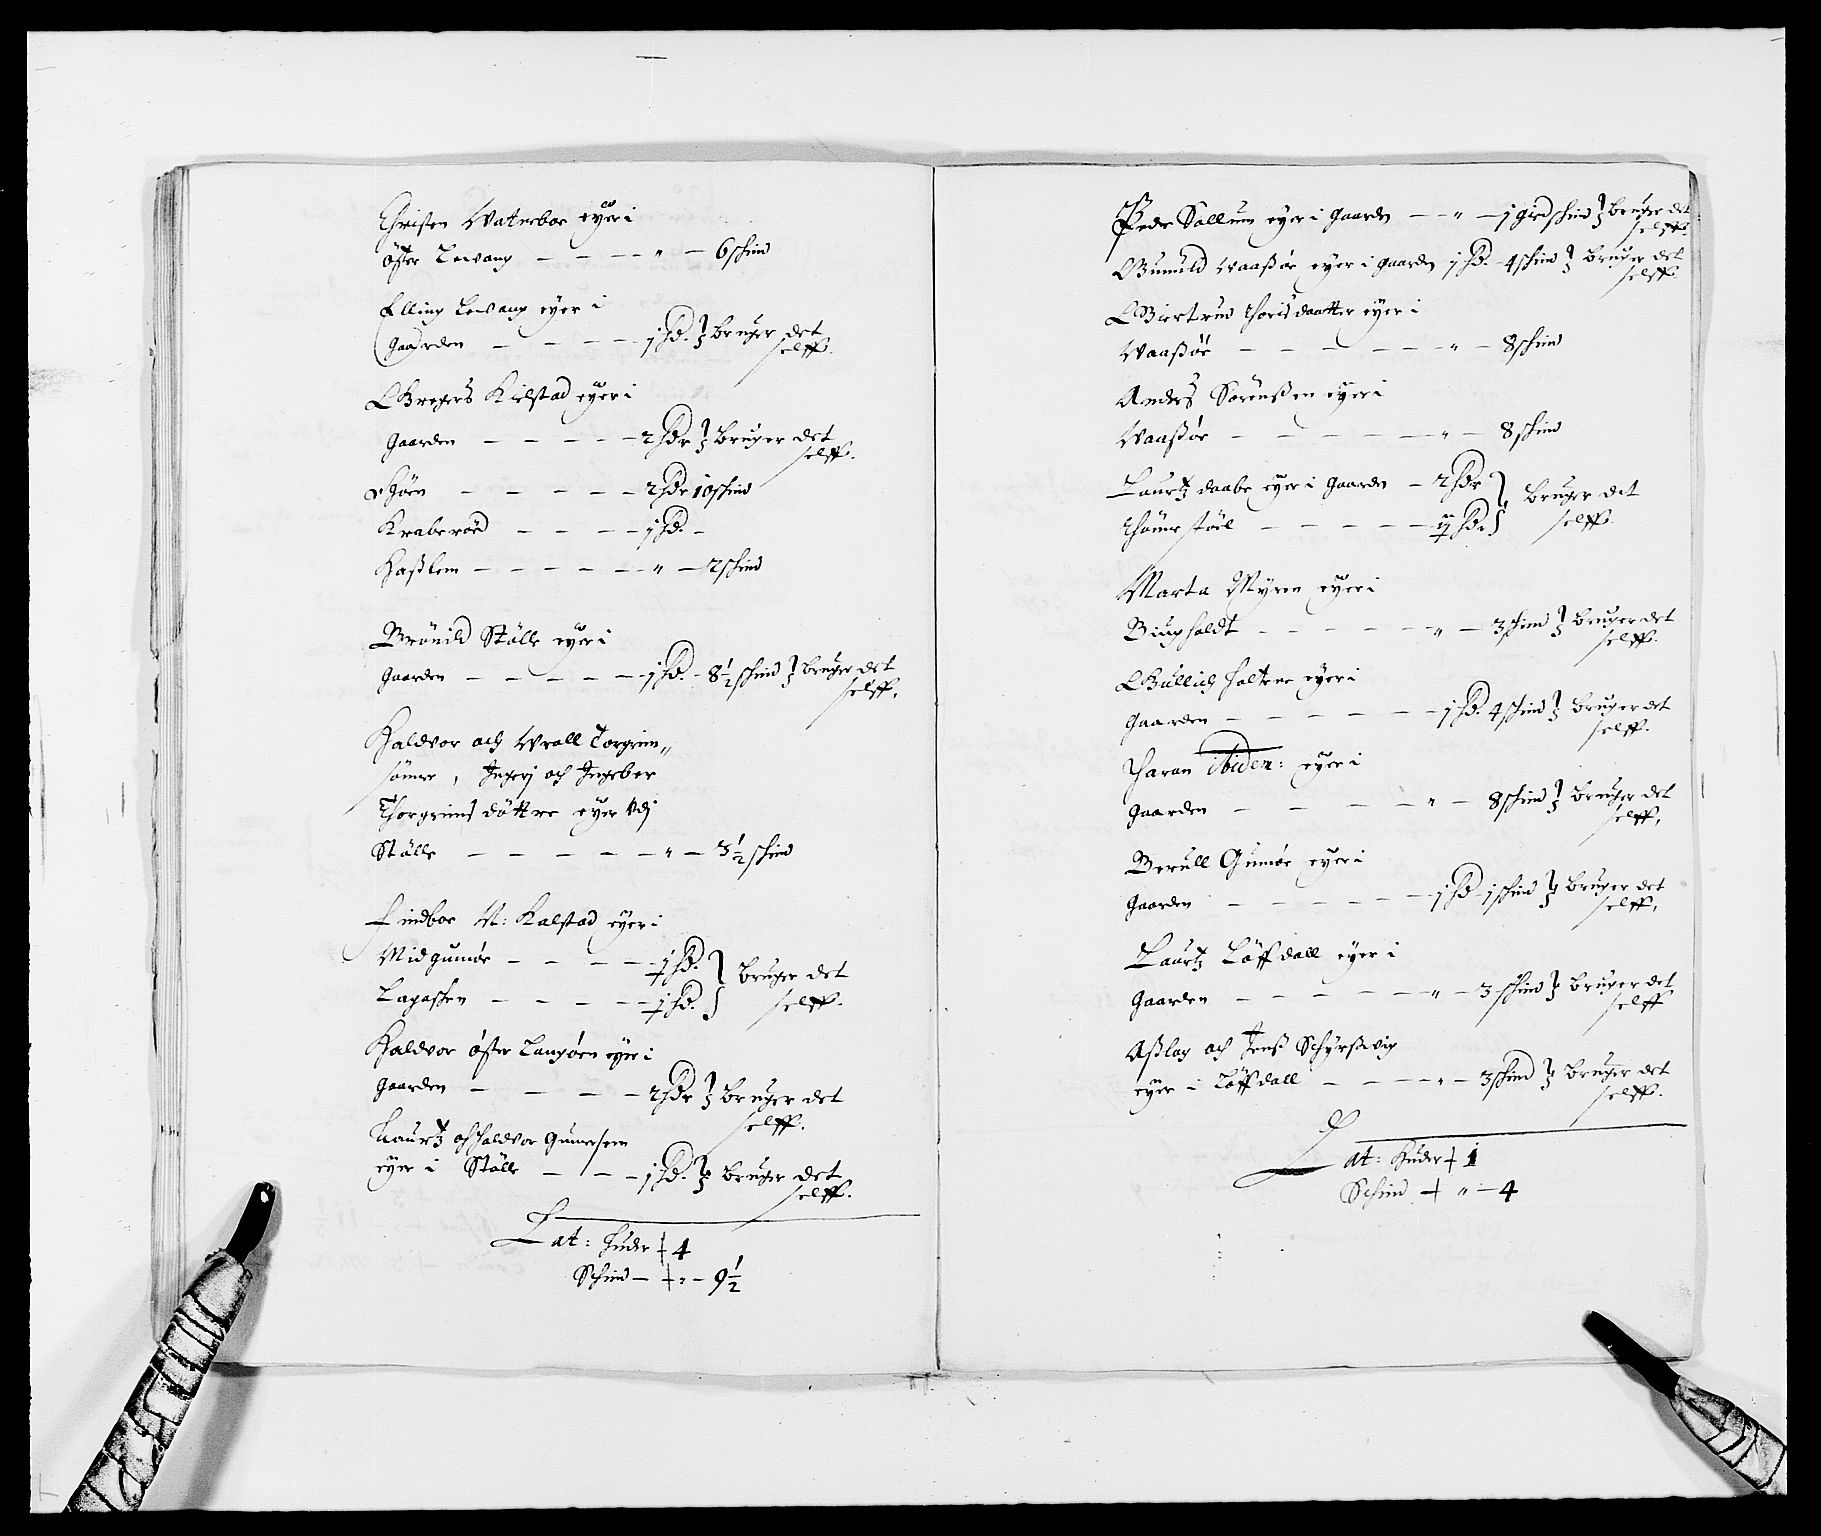 Christen Watneboe eyer i
öster Lewang — — — — " — 6 schind
Elling Lewang eyer i
Gaarden — — — — 1 hd. } bruger det
selff.
Gregers Kielstad eyer i
Gaarden — — — — — 2 hdr } bruger det
selff.
— — — — — 2 hdr 10 schind
Kraberöd — — — — 1 hd. —
Haszlem — — — — — " — 2 schind
Brönild Stölle eyer i
Gaarden — — — — — 1 hd. — 8½ schind } bruger det
selff.
Haldvor och Wroll Torgrim„
sönner, Ingerj och Ingebor
Thorgrims döttre eyer Vdj
Stölle — — — — — " — 3½ schind
Findboe N: Kalstad eyer i
Midgumöe — — — — ½ hd. } bruger det
Lagaszen — — — — ½ hd. } selff.
Haldvor öster Langöen eyer i
Gaarden — — — — 2 hdr } bruger det
selff.
Laurtz och Haldvor Gunersen
eyer i Stölle — — — 1 hd. } bruger det
selff.
Lat: huder + 4
Schind — + " — 9½
Peder Sollum eyer i Gaarden — — " — 1 schind } bruger det
selff.
Gunuld Waaszöe eyer i gaarden 1 hd. — 4 schind } bruger det
selff.
Giertrud Thorisdaatter eyer i
Waaszöe — — — — — — " — 8 schind
Anders Sörenszen eyer i
Waaszöe — — — — — " — 8 schind
Laurtz daabe eyer i Gaarden — 2 hdr } bruger det
Thömestöel — — — — — hdr } selff.
Marta Myren eyer i
Biugholdt — — — — — " — 3 schind } bruger det
selff.
Gullich holtene eyer i
Gaarden — — — — — — 1 hd. 4 schind } bruger det
selff.
Tharan ibidem: eyer i
Gaarden — — — — " — 8 schind } bruger det
selff.
Berull Gumöe eyer i
Gaarden — — — — — — 1 hd 1 schind } bruger det
selff.
Laurtz Löffdall eyer i
Gaarden — — — — — " — 3 schind } bruger det
selff
Aszlag och Jensz Schyrszvig
eyer i Löffdall — — — " — 3 schind } bruger det
selff.
Lat: Huder + 1
Schind + " — 4